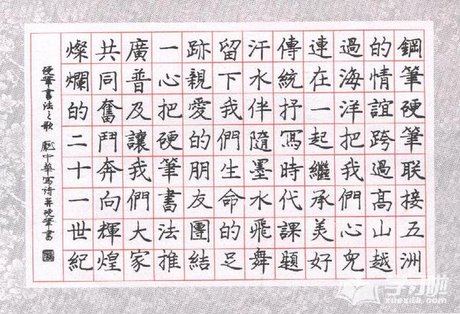 鋼筆硬筆聯接五洲
的情誼跨過高山越
過海洋把我們心兒
連在一起繼承美好
傳統抒寫時代課題
汗水伴隨墨水飛舞
留下我們生命的足
跡親愛的朋友團結
一心把硬筆書法推
廣普及讓我們大家
共同奮鬥奔向輝煌
燦爛的二十一世紀
硬筆書法之歌 龐中華寫詩并硬筆書
学习啦